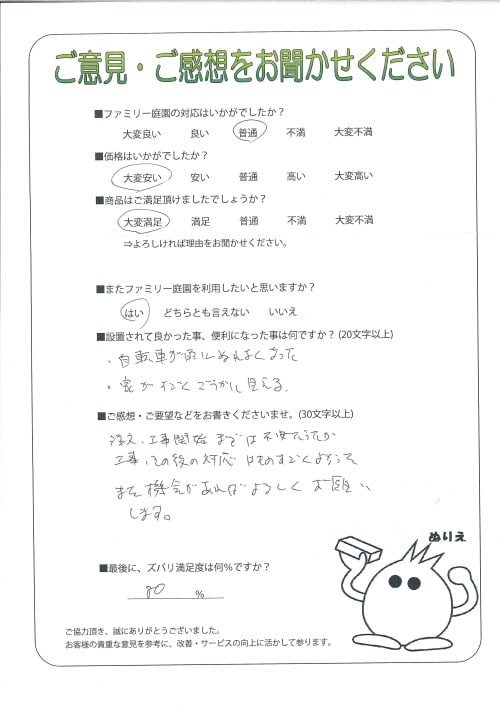 ご意見・ご感想をお聞かせください
■ファミリー庭園の対応はいかがでしたか？
大変良い 良い 普通 不満 大変不満
■価格はいかがでしたか？
大変安い 安い 普通 高い 大変高い
■商品はご満足頂けましたでしょうか？
大変満足 満足 普通 不満 大変不満
⇒よろしければ理由をお聞かせください。
■またファミリー庭園を利用したいと思いますか？
はい どちらとも言えない いいえ
■設置されて良かった事、便利になった事は何ですか？(20文字以上)
・自転車が雨にぬれなくなった
・家がすごくごうかに見える。
■ご感想・ご要望などをお書きくださいませ。(30文字以上)
注文、工事開始までは不安でしたが
工事、その後の対応はものすごくよかった
また機会があればよろしくお願い
します。
ぬりえ
■最後に、ズバリ満足度は何%ですか？
80 %
ご協力頂き、誠にありがとうございました。
お客様の貴重な意見を参考に、改善・サービスの向上に活かして参ります。